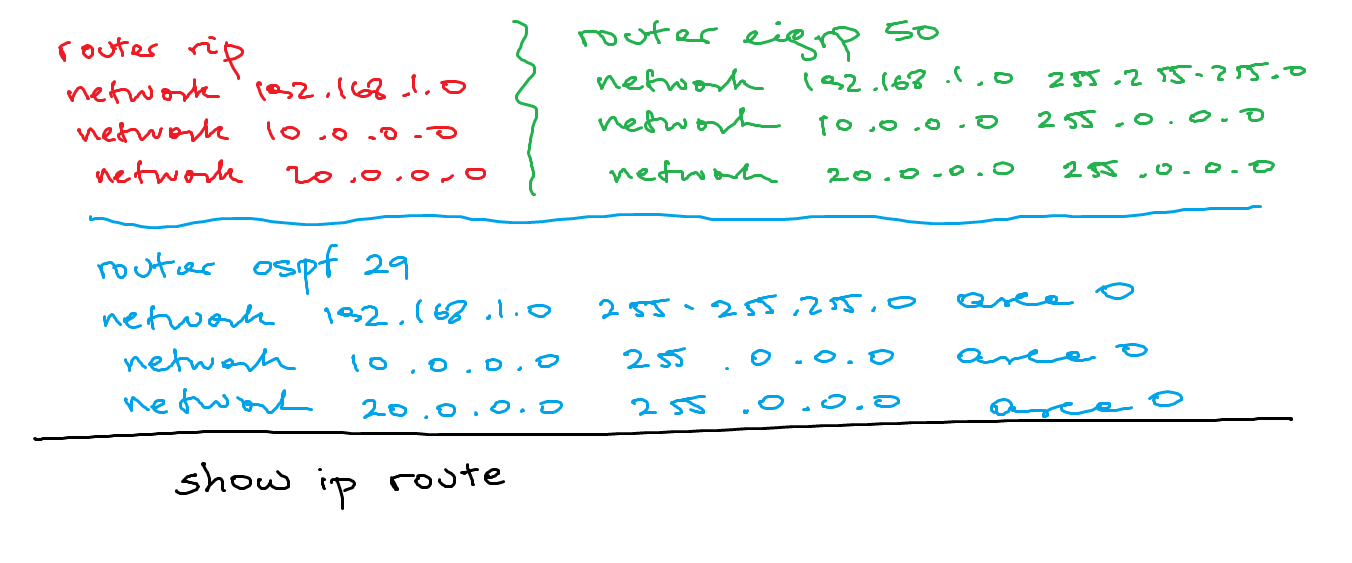 router rip
network 192.168.1.0
network 10.0.0.0
network 20.0.0.0
router eigrp 50
network 192.168.1.0 255.255.255.0
network 10.0.0.0 255.0.0.0
network 20.0.0.0 255.0.0.0
router ospf 29
network 192.168.1.0 255.255.255.0 area 0
network 10.0.0.0 255.0.0.0 area 0
network 20.0.0.0 255.0.0.0 area 0
show ip route